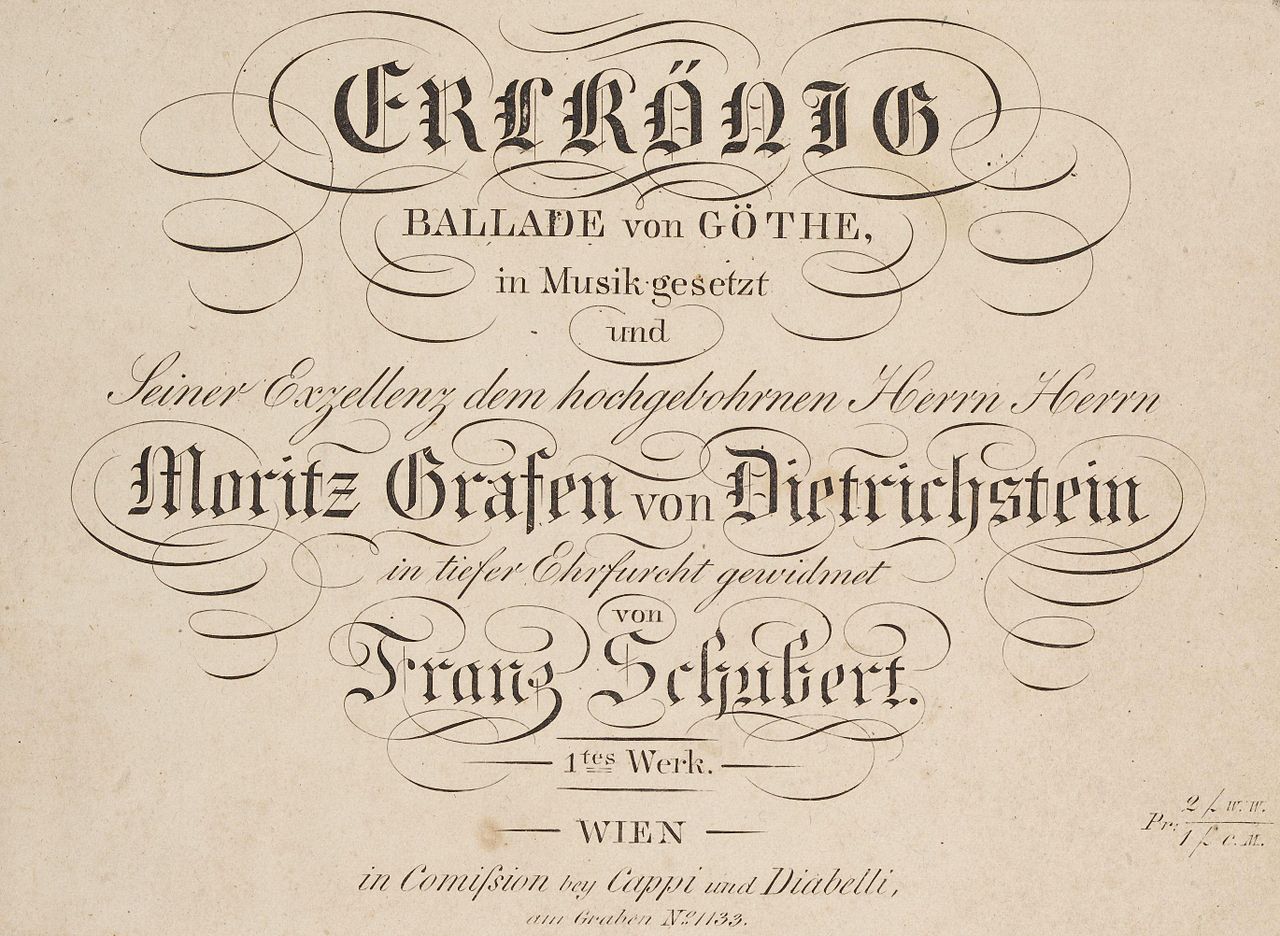 ERLKÖNIG
BALLADE von GÖTHE,
in Musik gesetzt
und
Seiner Exzellenz dem hochgebohrnen Herrn Herrn
Moritz Grafen von Dietrichstein
in tiefer Ehrfurcht gewidmet
von
Franz Schubert.
1tes Werk.
WIEN
Pr: 2 f. W.W.
1 f. C.M.
in Comißion bey Cappi und Diabelli,
am Graben No. 1133.